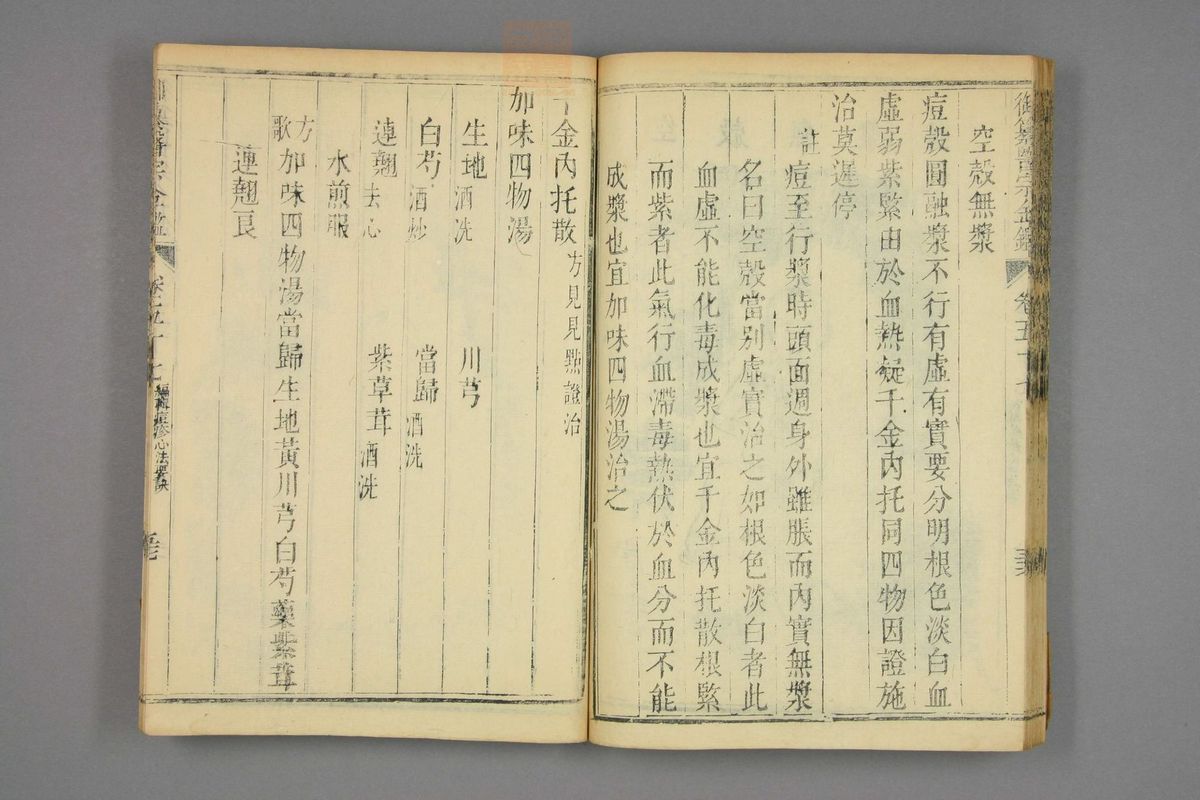 御纂醫宗金鑑 卷五十
空殼無漿
痘殼圓融漿不行有虛有實要分明根色淡白血
虛弱紫緊由於血熱凝千金內托同四物因證施
治莫遲停
註痘至行漿時頭面週身外雖脹而內實無漿
名曰空殼當別虛實治之如根色淡白者此
血虛不能化毒成漿也宜千金內托散根緊
而紫者此氣行血滯毒熱伏於血分而不能
成漿也宜加味四物湯治之
千金內托散方見見點證治
加味四物湯
生地酒洗 川芎
白芍酒炒 當歸酒洗
連翹去心 紫草茸酒洗
水煎服
方歌加味四物湯當歸生地黃川芎白芍藥紫茸
連翹良
編輯痘疹心法要訣